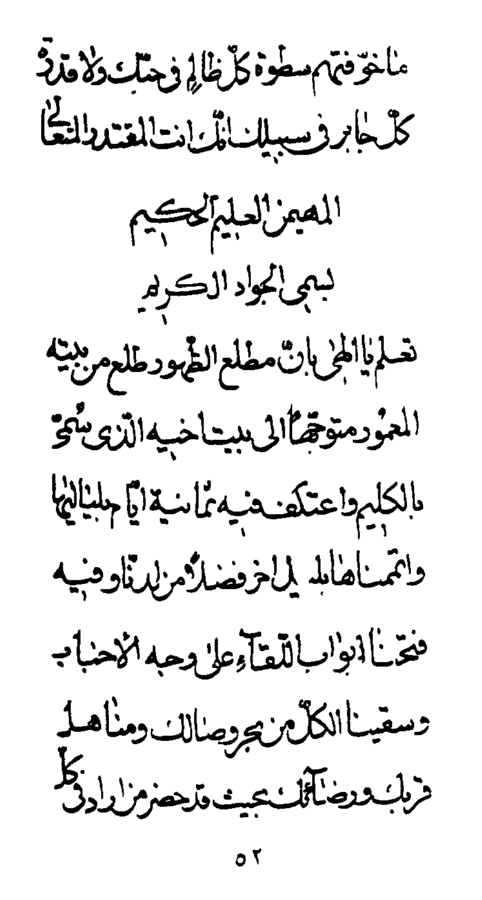 ما خوّفتهم سطوة كلّ ظالم فی حبّك ولا قدرة
كلّ جابر فی سبيلك انّك انت المقتدر المتعالی
المهيمن العليم الحكيم
بسمی الجواد الكريم
تعلم يا الهی بانّ مطلع الظّهور طلع من بيته
المعمور متوجّهاً الی بيت اخيه الّذی سُمّی
بالكليم واعتكف فيه ثمانية ايّام بلياليها
واتممناها بليل اخر فضلاً من لدنّا وفيه
فتحنا ابواب اللّقآء علی وجه الاحباب
وسقينا الكلّ من بحر وصالك ومناهل
قربك ورضآئك بحيث قد حضر من اراد فی كلّ
٥٢